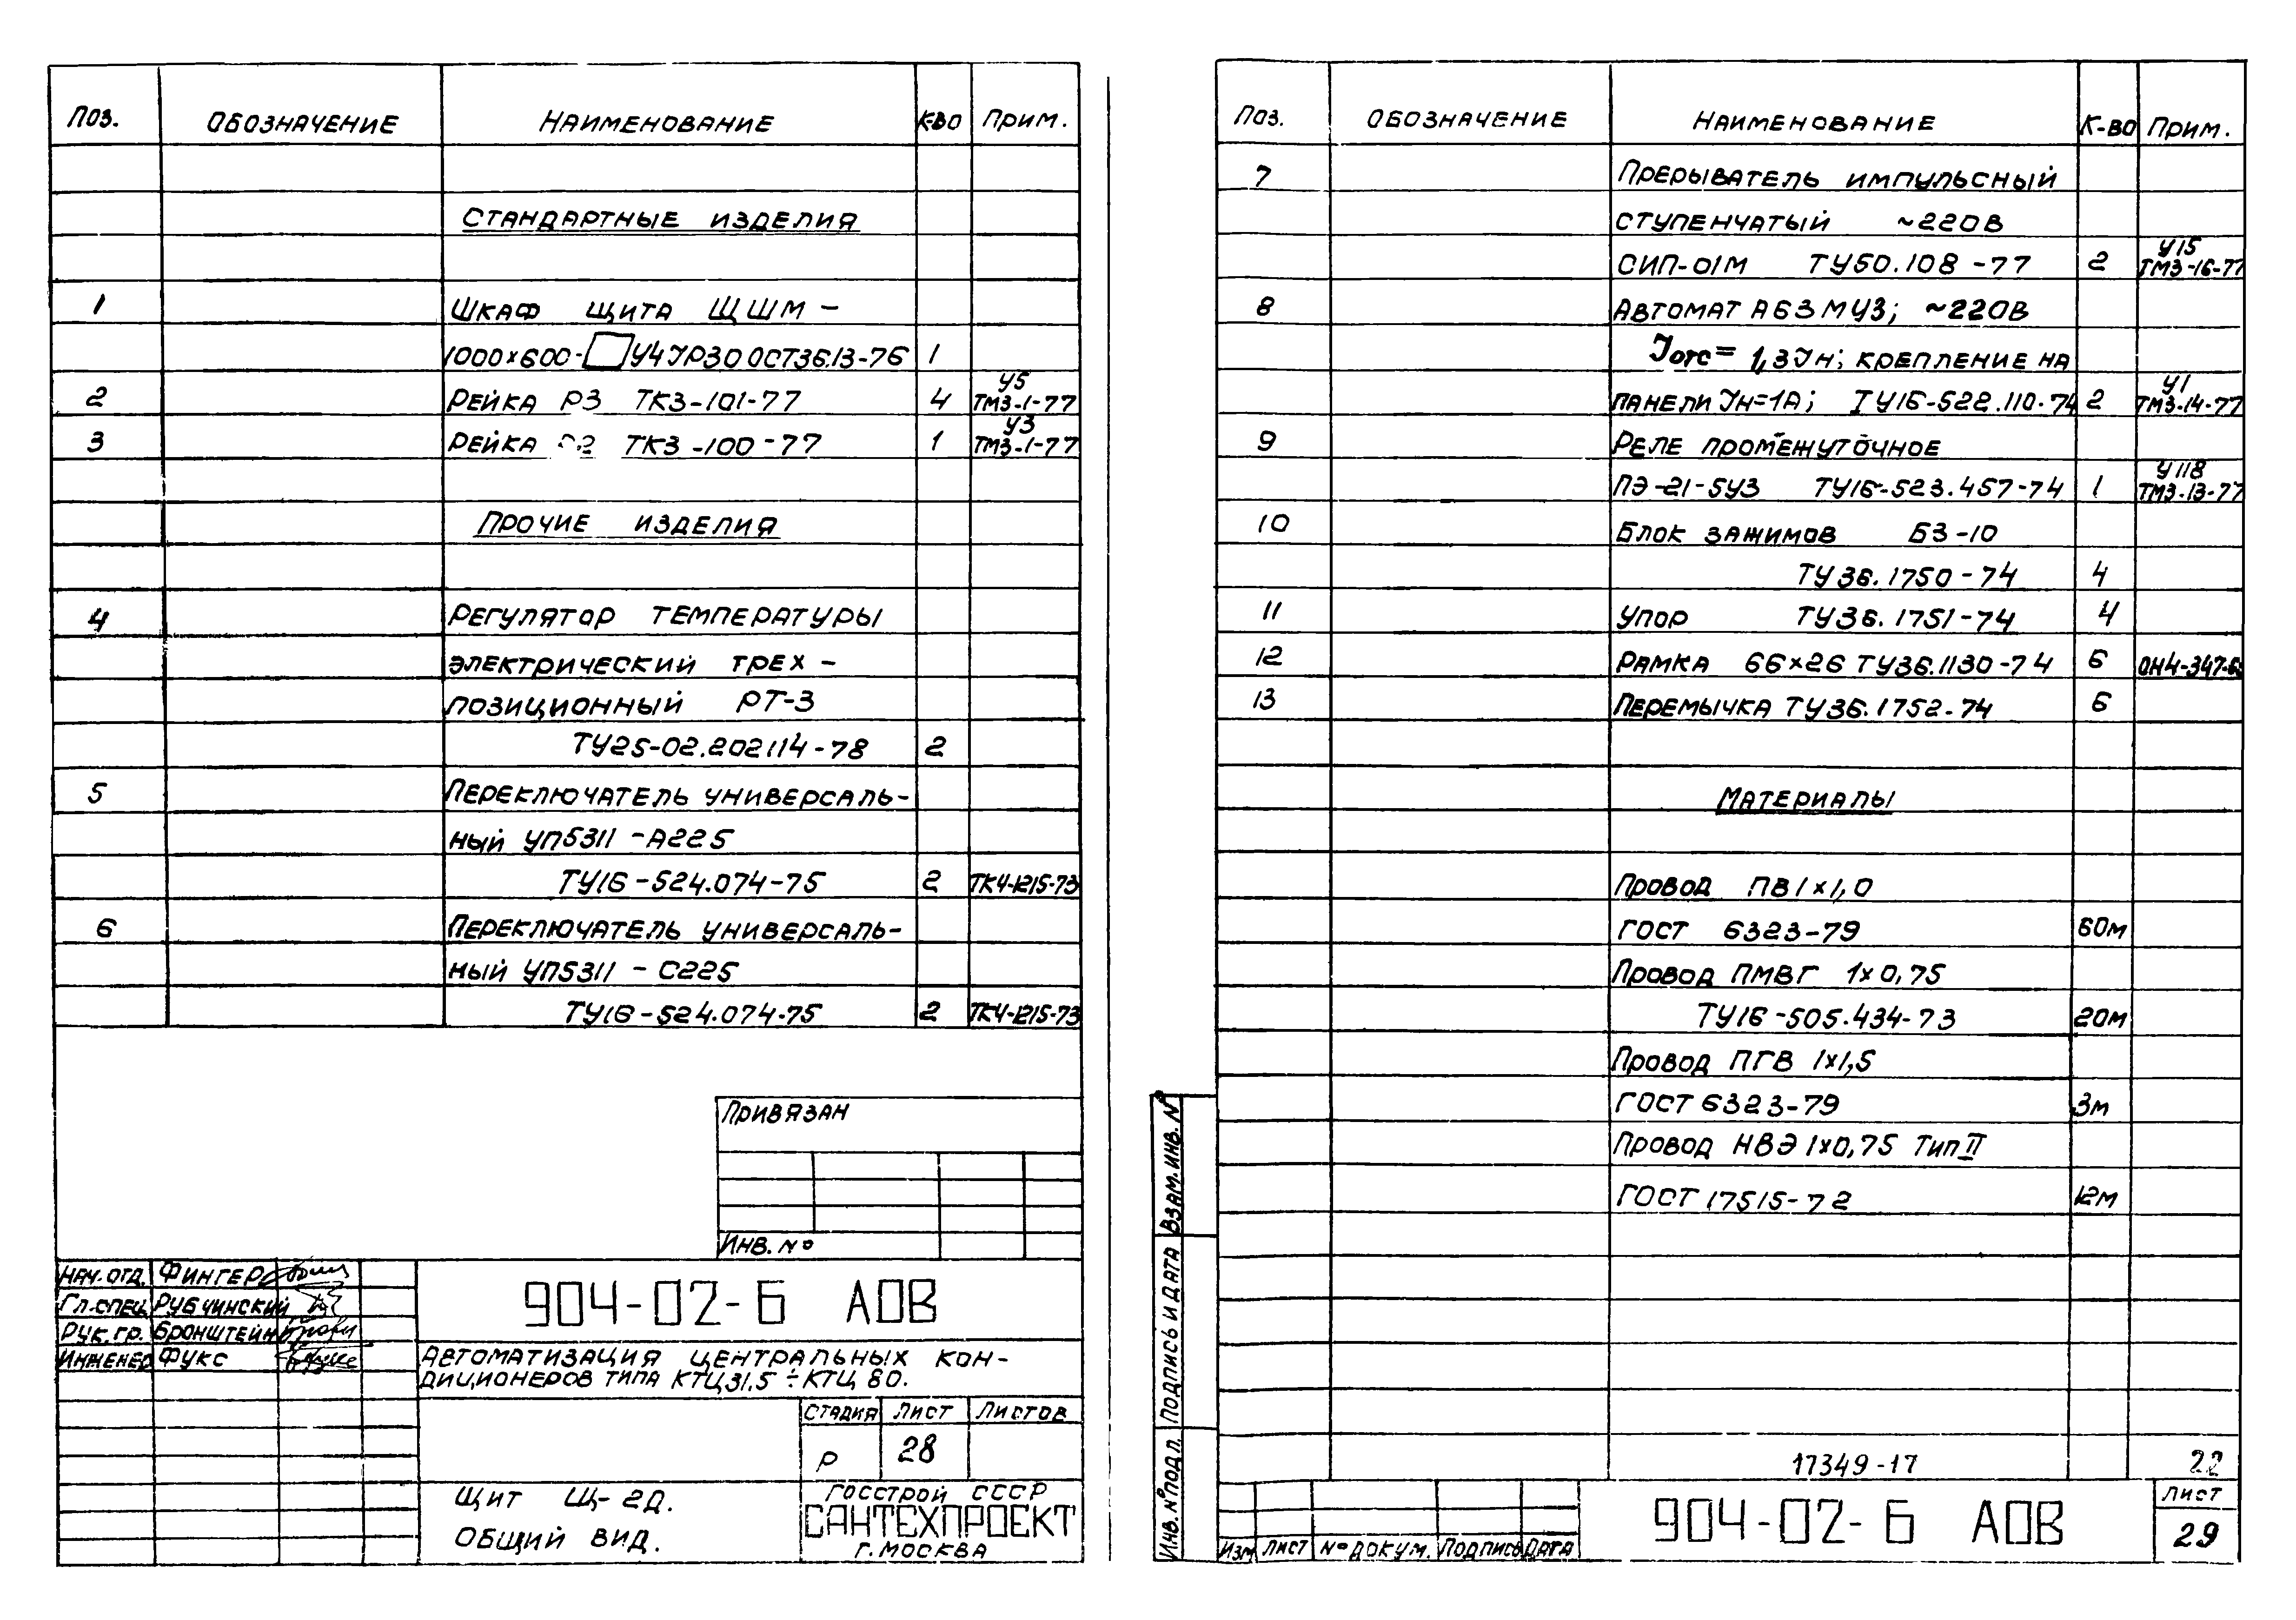 Поз. Обозначение Наименование К-во Прим.
Стандартные изделия
1 Шкаф щита ЩШМ –
1000×600- У4 УР30 ОСТ36.13-76 1
2 Рейка Р3 ТК3-101-77 4 У5 ТМ3-1-77
3 Рейка ТК3-100-77 1 У3 ТМ3-1-77
Прочие изделия
4 Регулятор температуры
электрический трех –
позиционный РТ-3
ТУ25-02.202114-78 2
5 Переключатель универсаль-
ный УП5311-А225
ТУ16-524.074-75 2 ТК4-1215-73
6 Переключатель универсаль-
ный УП5311-С225
ТУ16-524.074-75 2 ТК4-1215-73
Привязан
Инв. №
Нач. отд. Фингер
Гл. спец. Рубчинский
Рук. гр. Бронштейн
Инженер Фукс
904-02-6 АОВ
Автоматизация центральных кон-
диционеров типа КТЦ31,5÷КТЦ 80.
Стадия Лист Листов
Р 28
Щит Щ-2Д.
Общий вид.
Госстрой СССР
САНТЕХПРОЕКТ
г. Москва
Поз. Обозначение Наименование К-во Прим.
7 Прерыватель импульсный
ступенчатый ~220В
СИП-01М ТУ50.108-77 2 У15 ТМ3-16-77
8 Автомат А63МУ3; ~220В
Jотс= 1,3Jн; крепление на
панели Jн=1А; ТУ16-522.110-74 2 У1 ТМ3-14-77
9 Реле промежуточное
ПЭ-21-5У3 ТУ16-523.457-74 1 У118 ТМ3-13-77
10 Блок зажимов БЗ-10
ТУ36.1750-74 4
11 Упор ТУ36.1751-74 4
12 Рамка 66×26 ТУ36.1130-74 6
13 Перемычка ТУ36.1752-74 6
Материалы
Провод ПВ1×1,0
ГОСТ 6323-79 60м
Провод ПМВГ 1×0,75
ТУ16-505.434-73 20м
Провод ПГВ 1×1,5
ГОСТ 6323-79 3м
Провод НВЭ 1×0,75 Тип II
ГОСТ 17515-72 12м
17349-17 22
Взам. инв. №
Подпись и дата
Инв. № подл.
Изм Лист № докум. Подпись Дата
904-02-6 АОВ
Лист
29